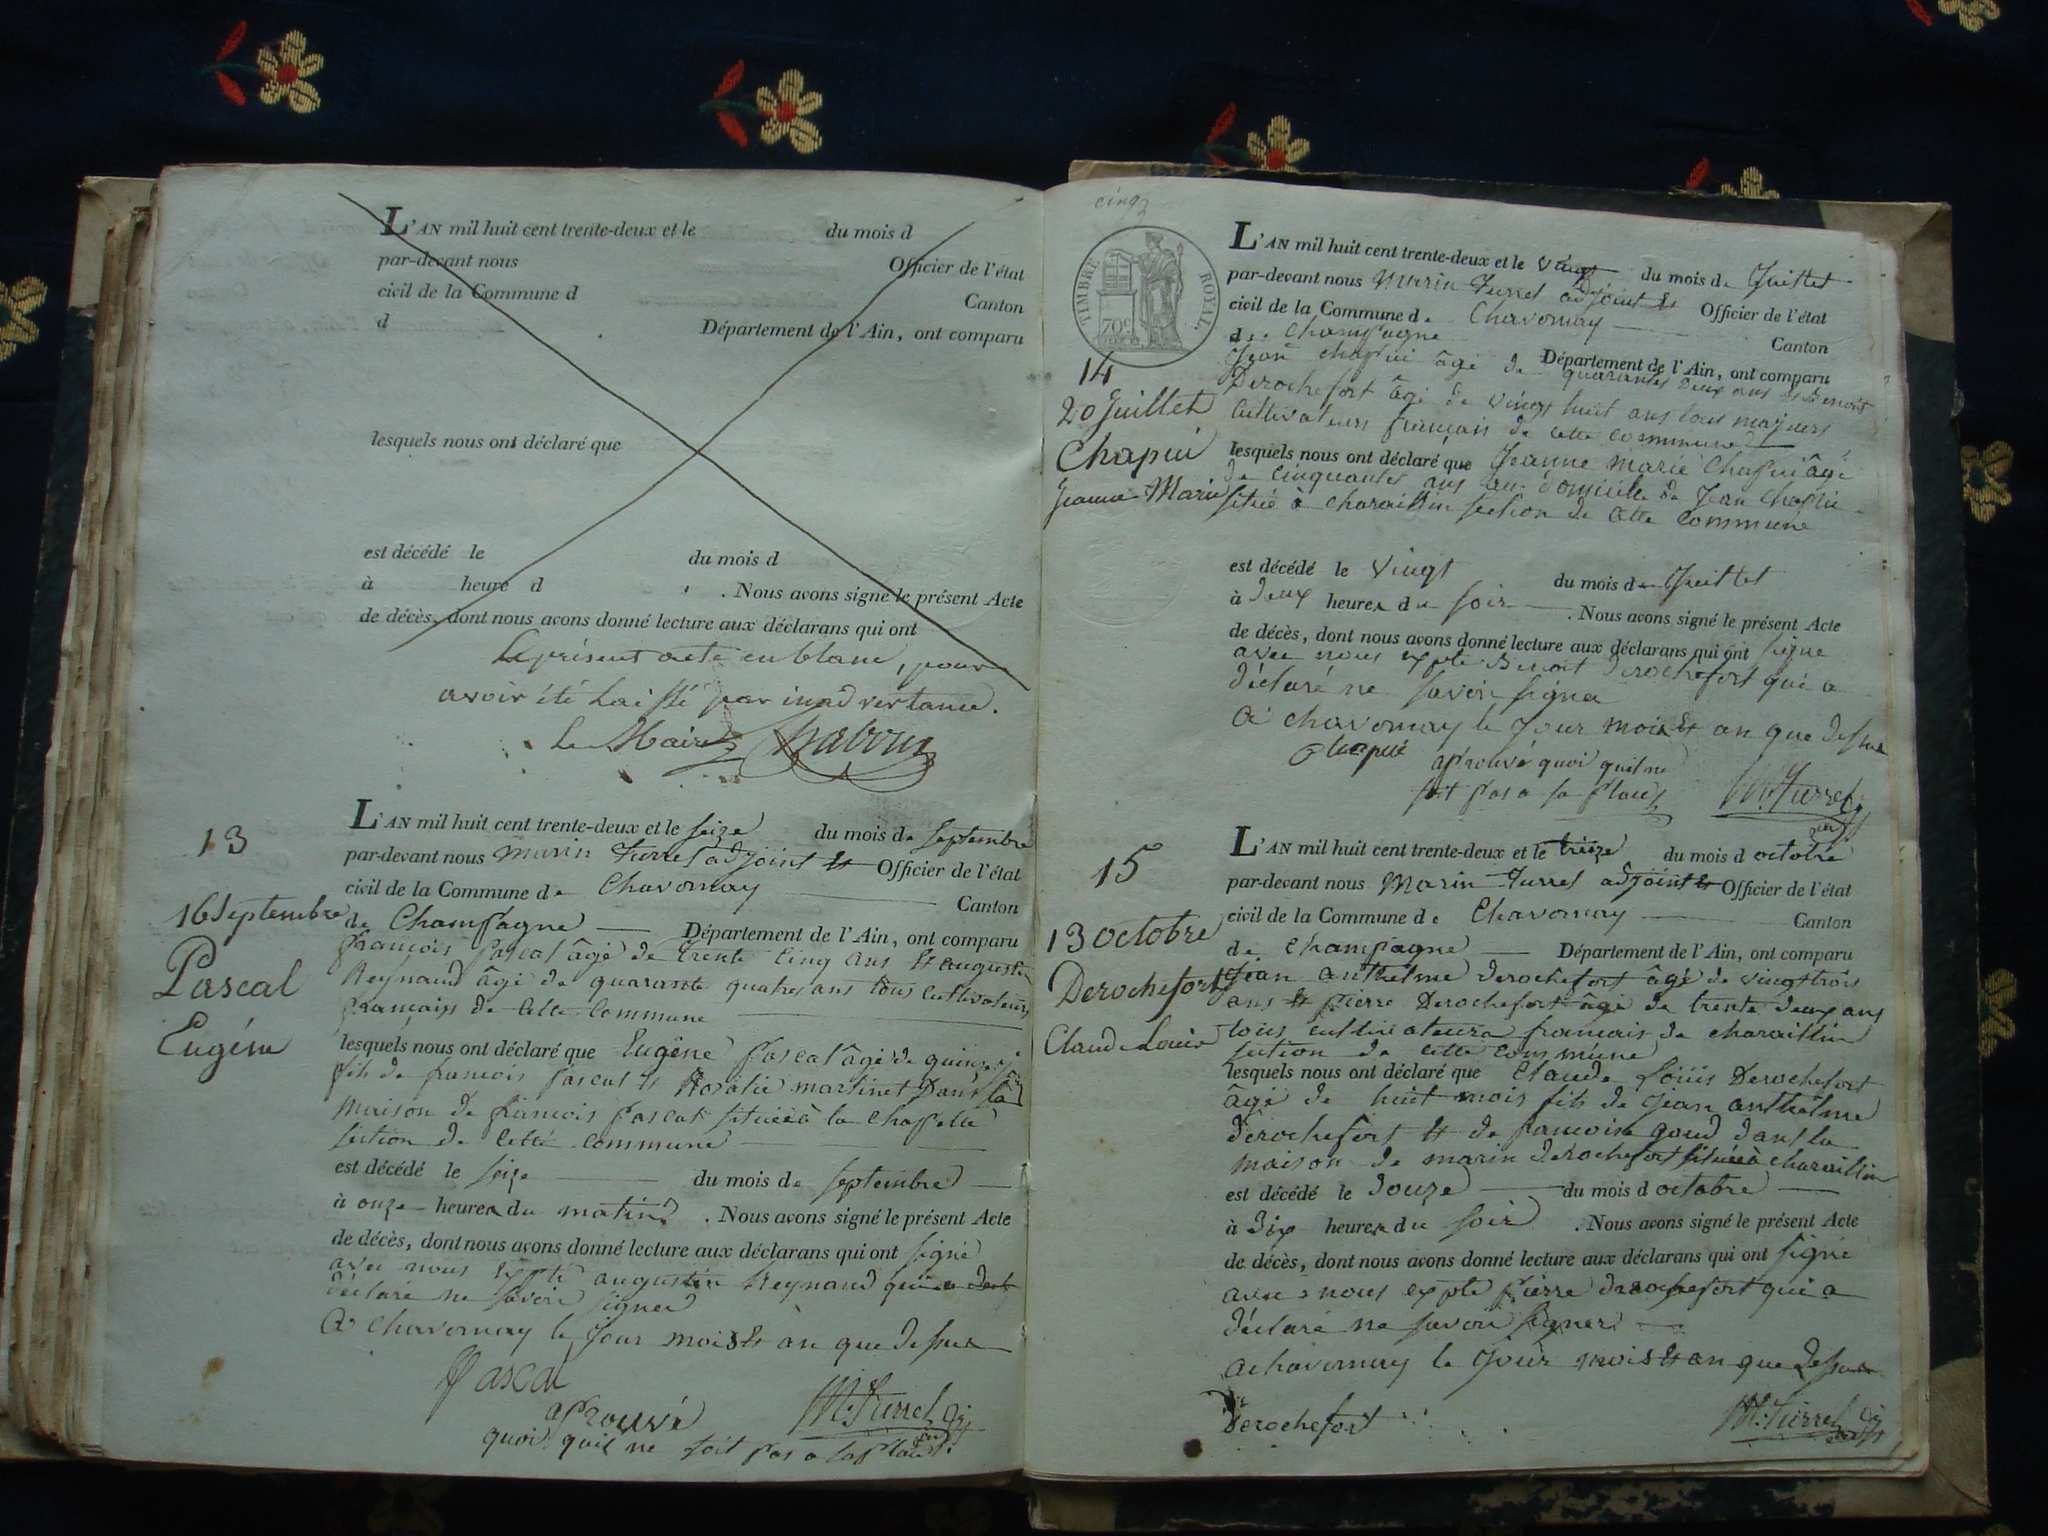 L'AN mil huit cent trente-deux et le du mois d
par-devant nous Officier de l'état
civil de la Commune d Canton
d Département de l'Ain, ont comparu
lesquels nous ont déclaré que
est décédé le du mois d
à heure d . Nous avons signé le présent Acte
de décès, dont nous avons donné lecture aux déclarans qui ont
Le présent acte en blanc, pour
avoir été laissé par inadvertance.
Le Maire
13
16 Septembre
Pascal
Eugéne
L'AN mil huit cent trente-deux et le seize du mois de septembre
par-devant nous marin Turrel adjoint et Officier de l'état
civil de la Commune de Chavornay Canton
de Champagne Département de l'Ain, ont comparu
françois pascal âgé de trente cinq ans et augustin
Reynaud âgé de quarante quatre ans tous cultivateurs
français de cette commune
lesquels nous ont déclaré que Eugéne pascal âgé de quinze
fils de francois pascal et Rosalie martinet Dans la
maison de francois pascal située à la chapelle
section de cette commune
est décédé le seize du mois de septembre
à onze heures du matin . Nous avons signé le présent Acte
de décès, dont nous avons donné lecture aux déclarans qui ont signé
avec nous expté augustin Reynaud qui a
déclaré ne savoir signer
A chavornay le jour mois et an que dessus
Pascal
aprouvé
quoi quil ne soit pas a sa place
M. Turrel adj
cinq
TIMBRE ROYAL
70c
14
20 Juillet
Chapui
Jeanne Marie
L'AN mil huit cent trente-deux et le vingt du mois de Juillet
par-devant nous Marin Turrel adjoint et Officier de l'état
civil de la Commune de Chavornay Canton
de Champagne Département de l'Ain, ont comparu
Jean chapui âgé de quarante deux ans et Benoit
Derochefort âgé de vingt huit ans tous majeurs
Cultivateurs français de cette commune
lesquels nous ont déclaré que Jeanne Marie Chapui âgé
de cinquante ans au domicile de Jean Chapui
située à charaillin section de cette commune
est décédé le vingt du mois de Juillet
à deux heures du soir . Nous avons signé le présent Acte
de décès, dont nous avons donné lecture aux déclarans qui ont signé
avec nous expté Benoit Derochefort qui a
déclaré ne savoir signer
A chavornay le jour mois et an que dessus
Chapui
aprouvé quoi quil ne
soit pas a sa place
M. Turrel
adj
15
13 octobre
Derochefort
Claude Louis
L'AN mil huit cent trente-deux et le treize du mois d octobre
par-devant nous Marin Turrel adjoint et Officier de l'état
civil de la Commune de Chavornay Canton
de Champagne Département de l'Ain, ont comparu
Jean anthelme derochefort âgé de vingt trois
ans et pierre Derochefort âgé de trente deux ans
tous cultivateurs francais de charaillin
section de cette commune
lesquels nous ont déclaré que Claude Louis Derochefort
âgé de huit mois fils de Jean anthelme
derochefort et de francoise goud dans la
maison de marin derochefort située à charaillin
est décédé le douze du mois d octobre
à dix heures du soir . Nous avons signé le présent Acte
de décès, dont nous avons donné lecture aux déclarans qui ont signé
avec nous expté pierre derochefort qui a
déclaré ne savoir signer
a chavornay le jour mois et an que dessus
Derochefort
M. Turrel adj